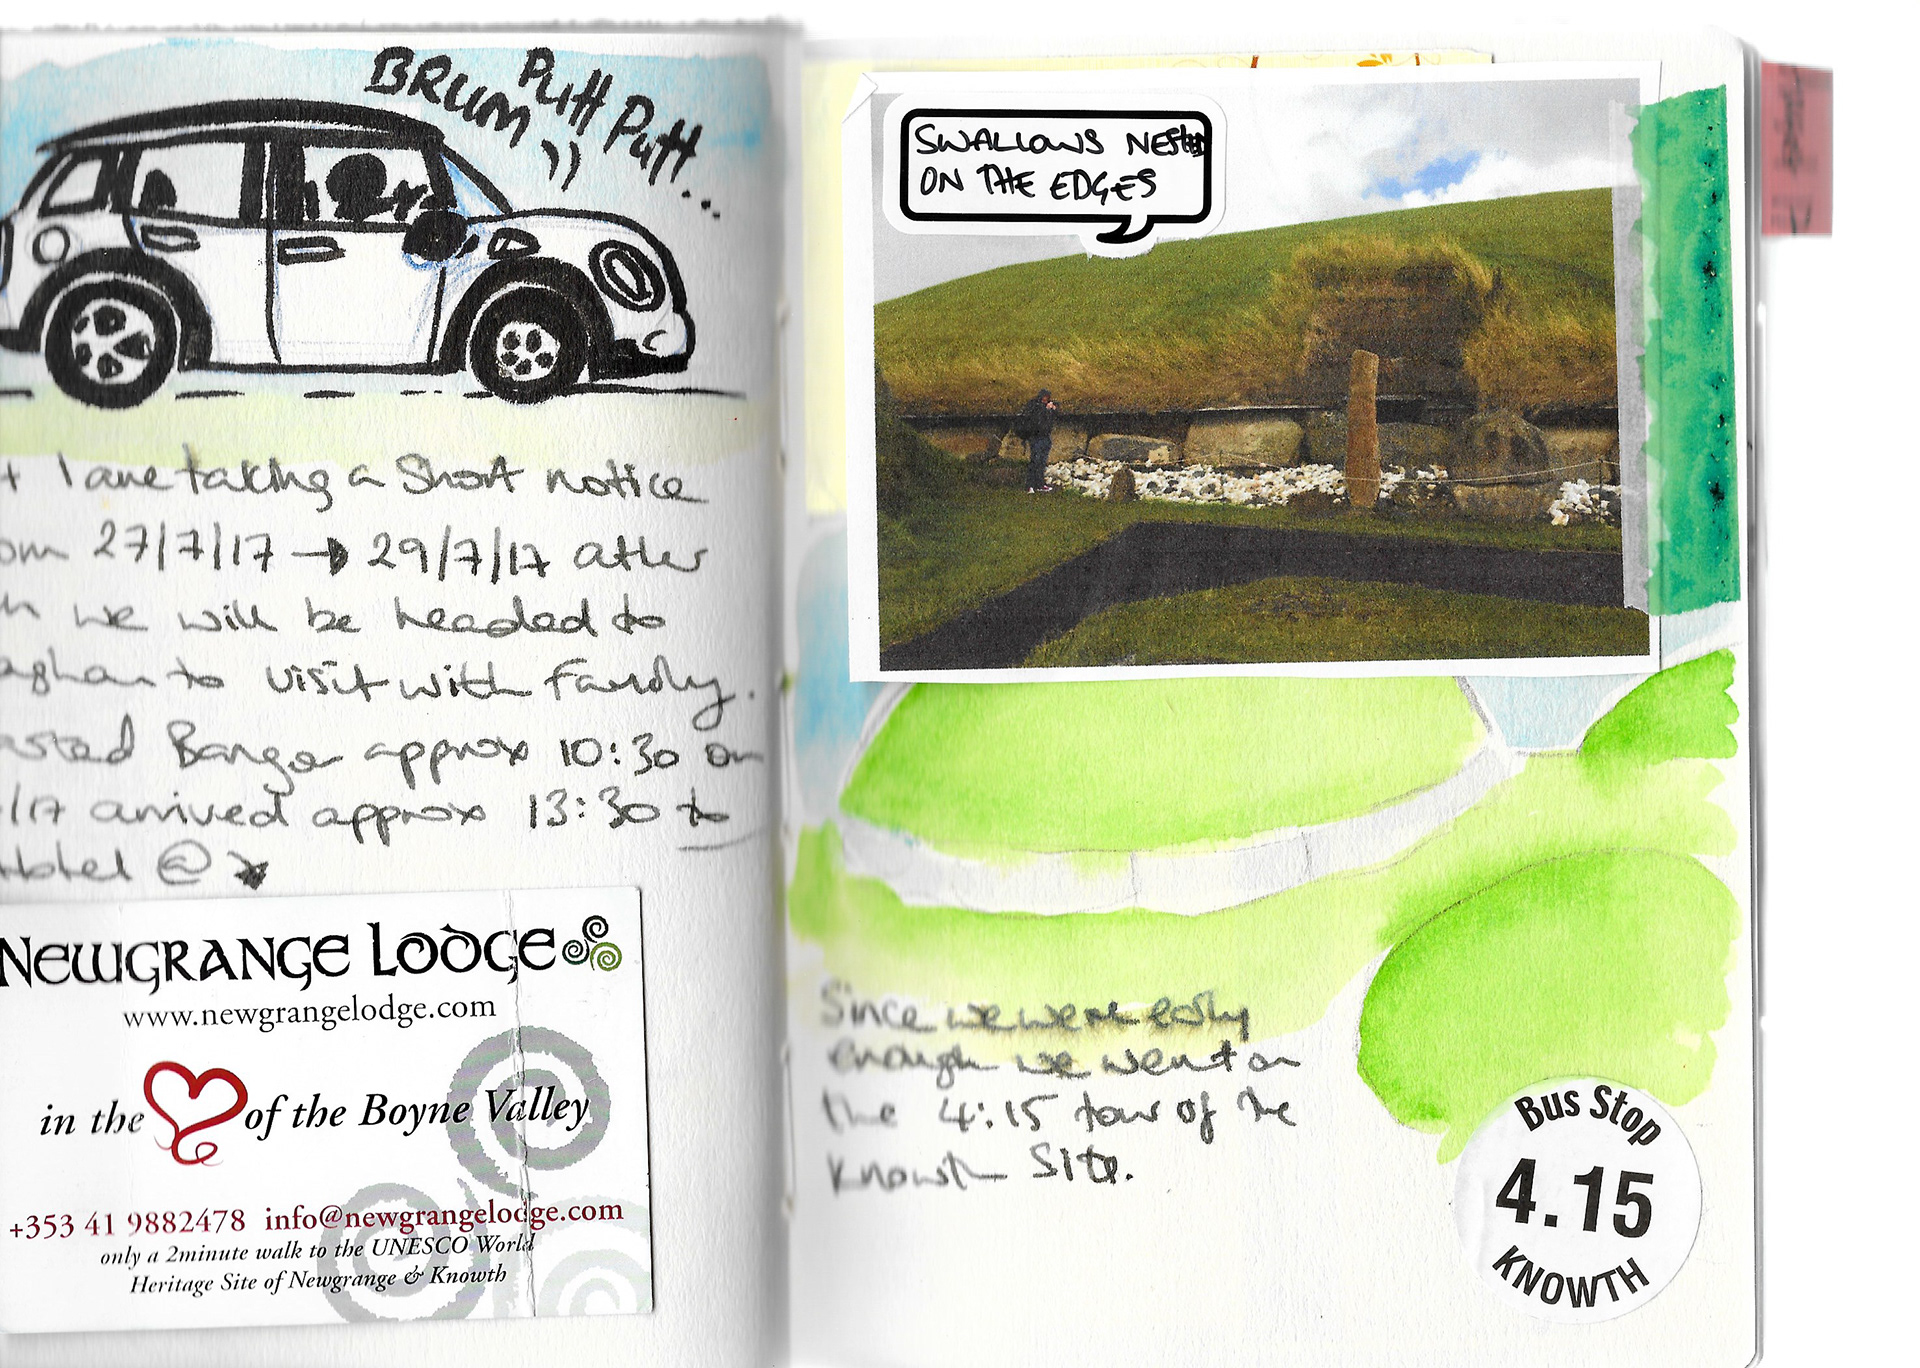 BRUM
Putt Putt...
I are taking a short notice
27/7/17 → 29/7/17 after
we will be headed to
to visit with family.
Bangor approx 10:30 on
/17 arrived approx 13:30 to
Hotel @
NEWGRANGE LODGE
www.newgrangelodge.com
in the of the Boyne Valley
+353 41 9882478 info@newgrangelodge.com
only a 2minute walk to the UNESCO World
Heritage Site of Newgrange & Knowth
SWALLOWS NEST
ON THE EDGES
Since we were early
enough we went on
the 4:15 tour of the
Knowth Site.
BUS STOP
4.15
KNOWTH